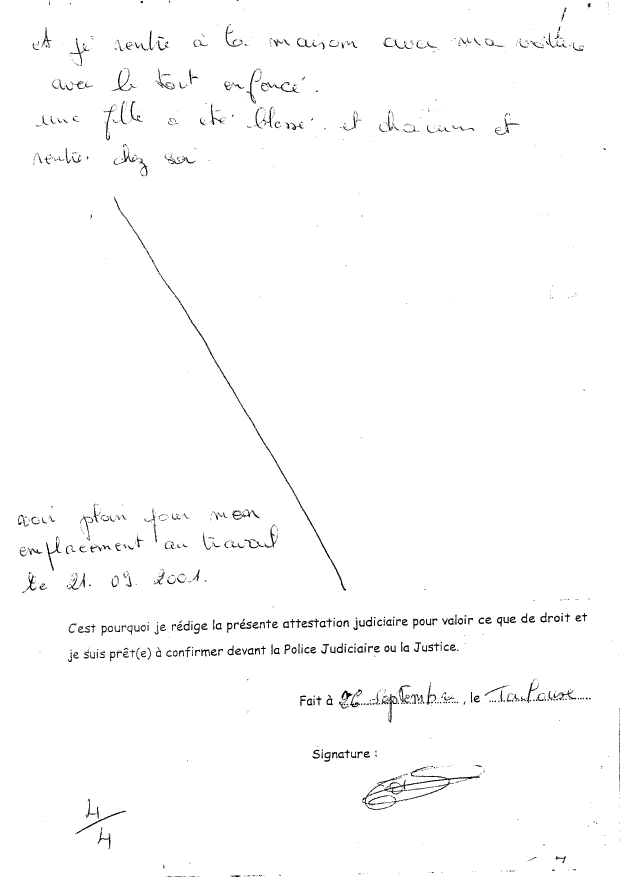 et je rentre à la maison avec ma voiture
avec le toit enfoncé.
une fille a été blessé. et chacun et
rentré chez soi.
voir plan pour mon
emplacement au travail
le 21. 09. 2001.
C'est pourquoi je rédige la présente attestation judiciaire pour valoir ce que de droit et
je suis prêt(e) à confirmer devant la Police Judiciaire ou la Justice.
Fait à 26 septembre, le Toulouse
Signature :
4/4